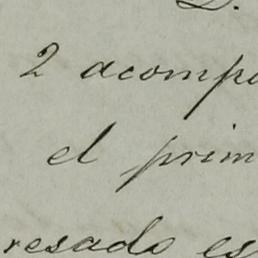 2 acompa
el prim
resado es